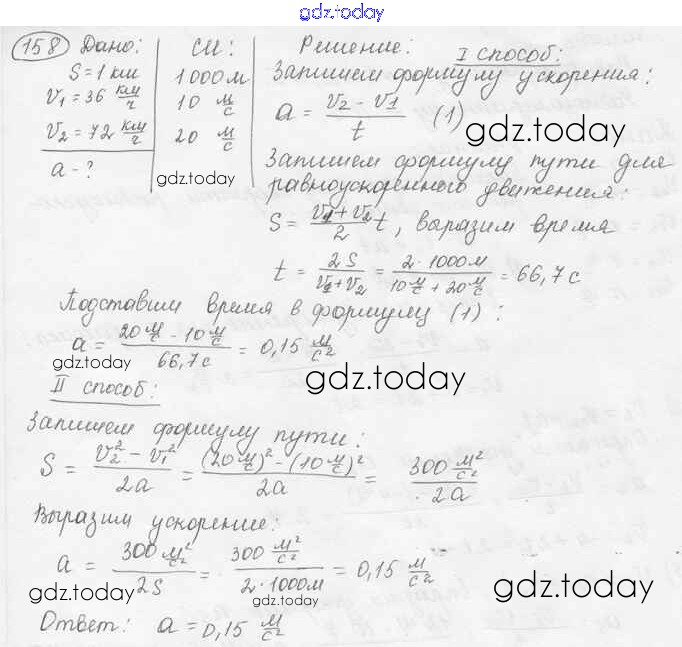 gdz.today
158 Дано: СИ: Решение: I способ:
S = 1 км 1000 м Запишем формулу ускорения:
V₁ = 36 км/ч 10 м/с a = (V₂ - V₁)/t (1)
V₂ = 72 км/ч 20 м/с gdz.today
a - ? gdz.today
Запишем формулу пути для
равноускоренного движения:
S = (V₁ + V₂)/2 t, выразим время
t = 2S/(V₁ + V₂) = 2·1000 м/(10 м/с + 20 м/с) = 66,7 с
Подставим время в формулу (1):
a = (20 м/с - 10 м/с)/66,7 с = 0,15 м/с²
gdz.today gdz.today
II способ:
Запишем формулу пути:
S = (V₂² - V₁²)/2a = ((20 м/с)² - (10 м/с)²)/2a = 300 м²/с²/2a
Выразим ускорение:
a = 300 м²/с²/2S = 300 м²/с²/2·1000 м = 0,15 м/с²
gdz.today gdz.today gdz.today
Ответ: a = 0,15 м/с²